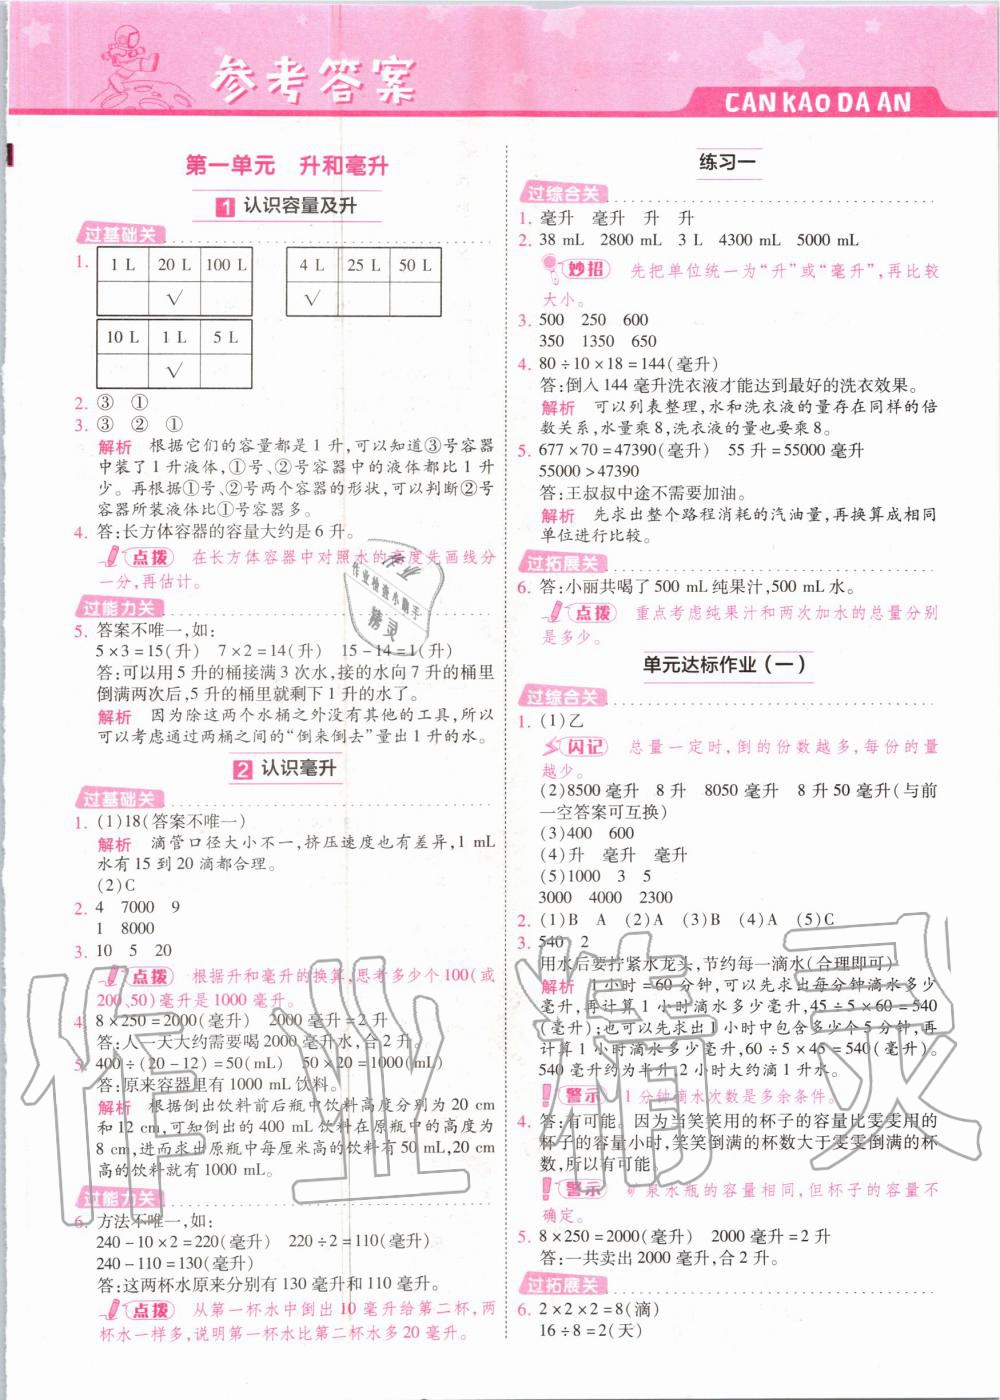 参考答案
CAN KAO DA AN
第一单元 升和毫升
1 认识容量及升
过基础关
1.
1 L 20 L 100 L
√
4 L 25 L 50 L
√
10 L 1 L 5 L
√
2. ③ ①
3. ③ ② ①
解析 根据它们的容量都是 1 升,可以知道③号容器
中装了 1 升液体,①号、②号容器中的液体都比 1 升
少。再根据①号、②号两个容器的形状,可以判断②号
容器所装液体比①号容器多。
4. 答:长方体容器的容量大约是 6 升。
点拨 在长方体容器中对照水的高度先画线分
一分,再估计。
过能力关
5. 答案不唯一,如:
5×3=15(升) 7×2=14(升) 15-14=1(升)
答:可以用 5 升的桶接满 3 次水,接的水向 7 升的桶里
倒满两次后,5 升的桶里就剩下 1 升的水了。
解析 因为除这两个水桶之外没有其他的工具,所以
可以考虑通过两桶之间的“倒来倒去”量出 1 升的水。
2 认识毫升
过基础关
1. (1)18(答案不唯一)
解析 滴管口径大小不一,挤压速度也有差异,1 mL
水有 15 到 20 滴都合理。
(2)C
2. 4 7000 9
1 8000
3. 10 5 20
点拨 根据升和毫升的换算,思考多少个 100(或
200、50)毫升是 1000 毫升。
4. 8×250=2000(毫升) 2000 毫升=2 升
答:人一天大约需要喝 2000 毫升水,合 2 升。
5. 400÷(20-12)=50(mL) 50×20=1000(mL)
答:原来容器里有 1000 mL 饮料。
解析 根据倒出饮料前后瓶中饮料高度分别为 20 cm
和 12 cm,可知倒出的 400 mL 饮料在原瓶中的高度为
8 cm,进而求出原瓶中每厘米高的饮料有 50 mL,20 cm
高的饮料就有 1000 mL。
过能力关
6. 方法不唯一,如:
240-10×2=220(毫升) 220÷2=110(毫升)
240-110=130(毫升)
答:这两杯水原来分别有 130 毫升和 110 毫升。
点拨 从第一杯水中倒出 10 毫升给第二杯,两
杯水一样多,说明第一杯水比第二杯水多 20 毫升。
练习一
过综合关
1. 毫升 毫升 升 升
2. 38 mL 2800 mL 3 L 4300 mL 5000 mL
妙招 先把单位统一为“升”或“毫升”,再比较
大小。
3. 500 250 600
350 1350 650
4. 80÷10×18=144(毫升)
答:倒入 144 毫升洗衣液才能达到最好的洗衣效果。
解析 可以列表整理,水和洗衣液的量存在同样的倍
数关系,水量乘 8,洗衣液的量也要乘 8。
5. 677×70=47390(毫升) 55 升=55000 毫升
55000>47390
答:王叔叔中途不需要加油。
解析 先求出整个路程消耗的汽油量,再换算成相同
单位进行比较。
过拓展关
6. 答:小丽共喝了 500 mL 纯果汁,500 mL 水。
点拨 重点考虑纯果汁和两次加水的总量分别
是多少。
单元达标作业(一)
过综合关
1. (1)乙
闪记 总量一定时,倒的份数越多,每份的量
越少。
(2)8500 毫升 8 升 8050 毫升 8 升 50 毫升(与前
一空答案可互换)
(3)400 600
(4)升 毫升 毫升
(5)1000 3 5
3000 4000 2300
2. (1)B A (2)A (3)B (4)A (5)C
3. 540 2
用水后要拧紧水龙头,节约每一滴水(合理即可)
解析 1 小时=60 分钟,可以先求出每分钟滴水多少
毫升,再计算 1 小时滴水多少毫升,45÷5×60=540
(毫升);也可以先求出 1 小时中包含多少个 5 分钟,再
计算 1 小时滴水多少毫升,60÷5×45=540(毫升)。
540 毫升约为半升,2 小时大约滴 1 升水。
警示 1 分钟滴水次数是多余条件。
4. 答:有可能。因为当笑笑用的杯子的容量比雯雯用的
杯子的容量小时,笑笑倒满的杯数大于雯雯倒满的杯
数,所以有可能。
警示 矿泉水瓶的容量相同,但杯子的容量不
确定。
5. 8×250=2000(毫升) 2000 毫升=2 升
答:一共卖出 2000 毫升,合 2 升。
过拓展关
6. 2×2×2=8(滴)
16÷8=2(天)
作业检查小助手
精灵
作业精灵